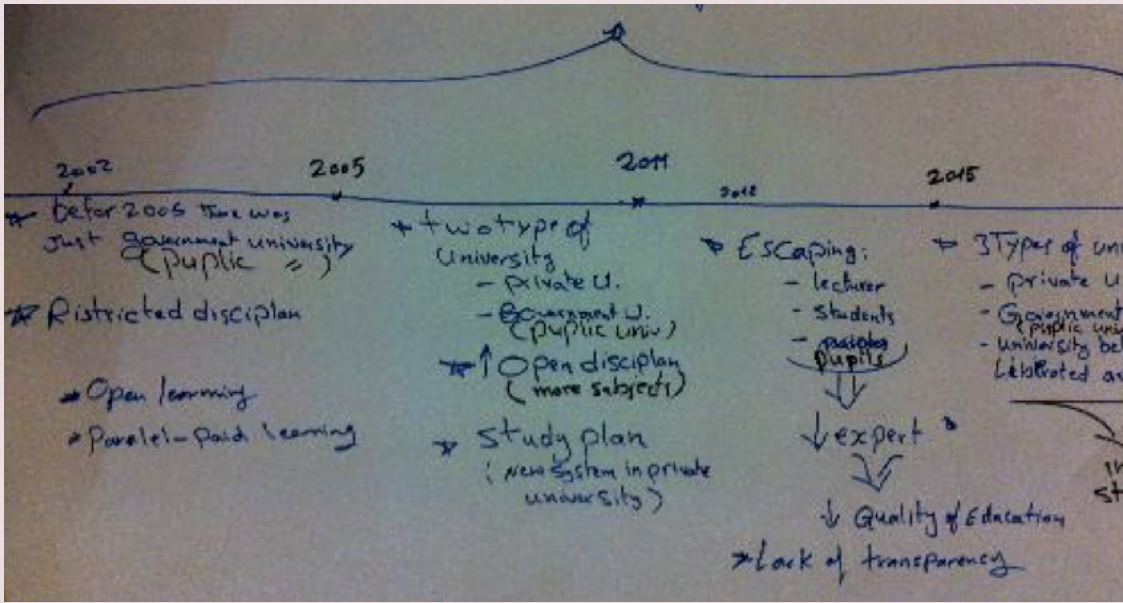 2002
2005
2011
2012
2015
* befor 2005 There was
Just government university
(puplic = )
* Ristricted disciplan
* Open learning
* Paralel-paid learning
* two type of
University
- private U.
- Government U.
(puplic univ)
* ↑ Open disciplan
(more subjects)
* Study plan
(New System in private
university)
* Escaping:
- lecturer
- Students
- pupils
↓ expert
↓ Quality of Education
* Lack of transparency
* 3 Types of uni
- private U
- Government
(puplic univ
- university bel